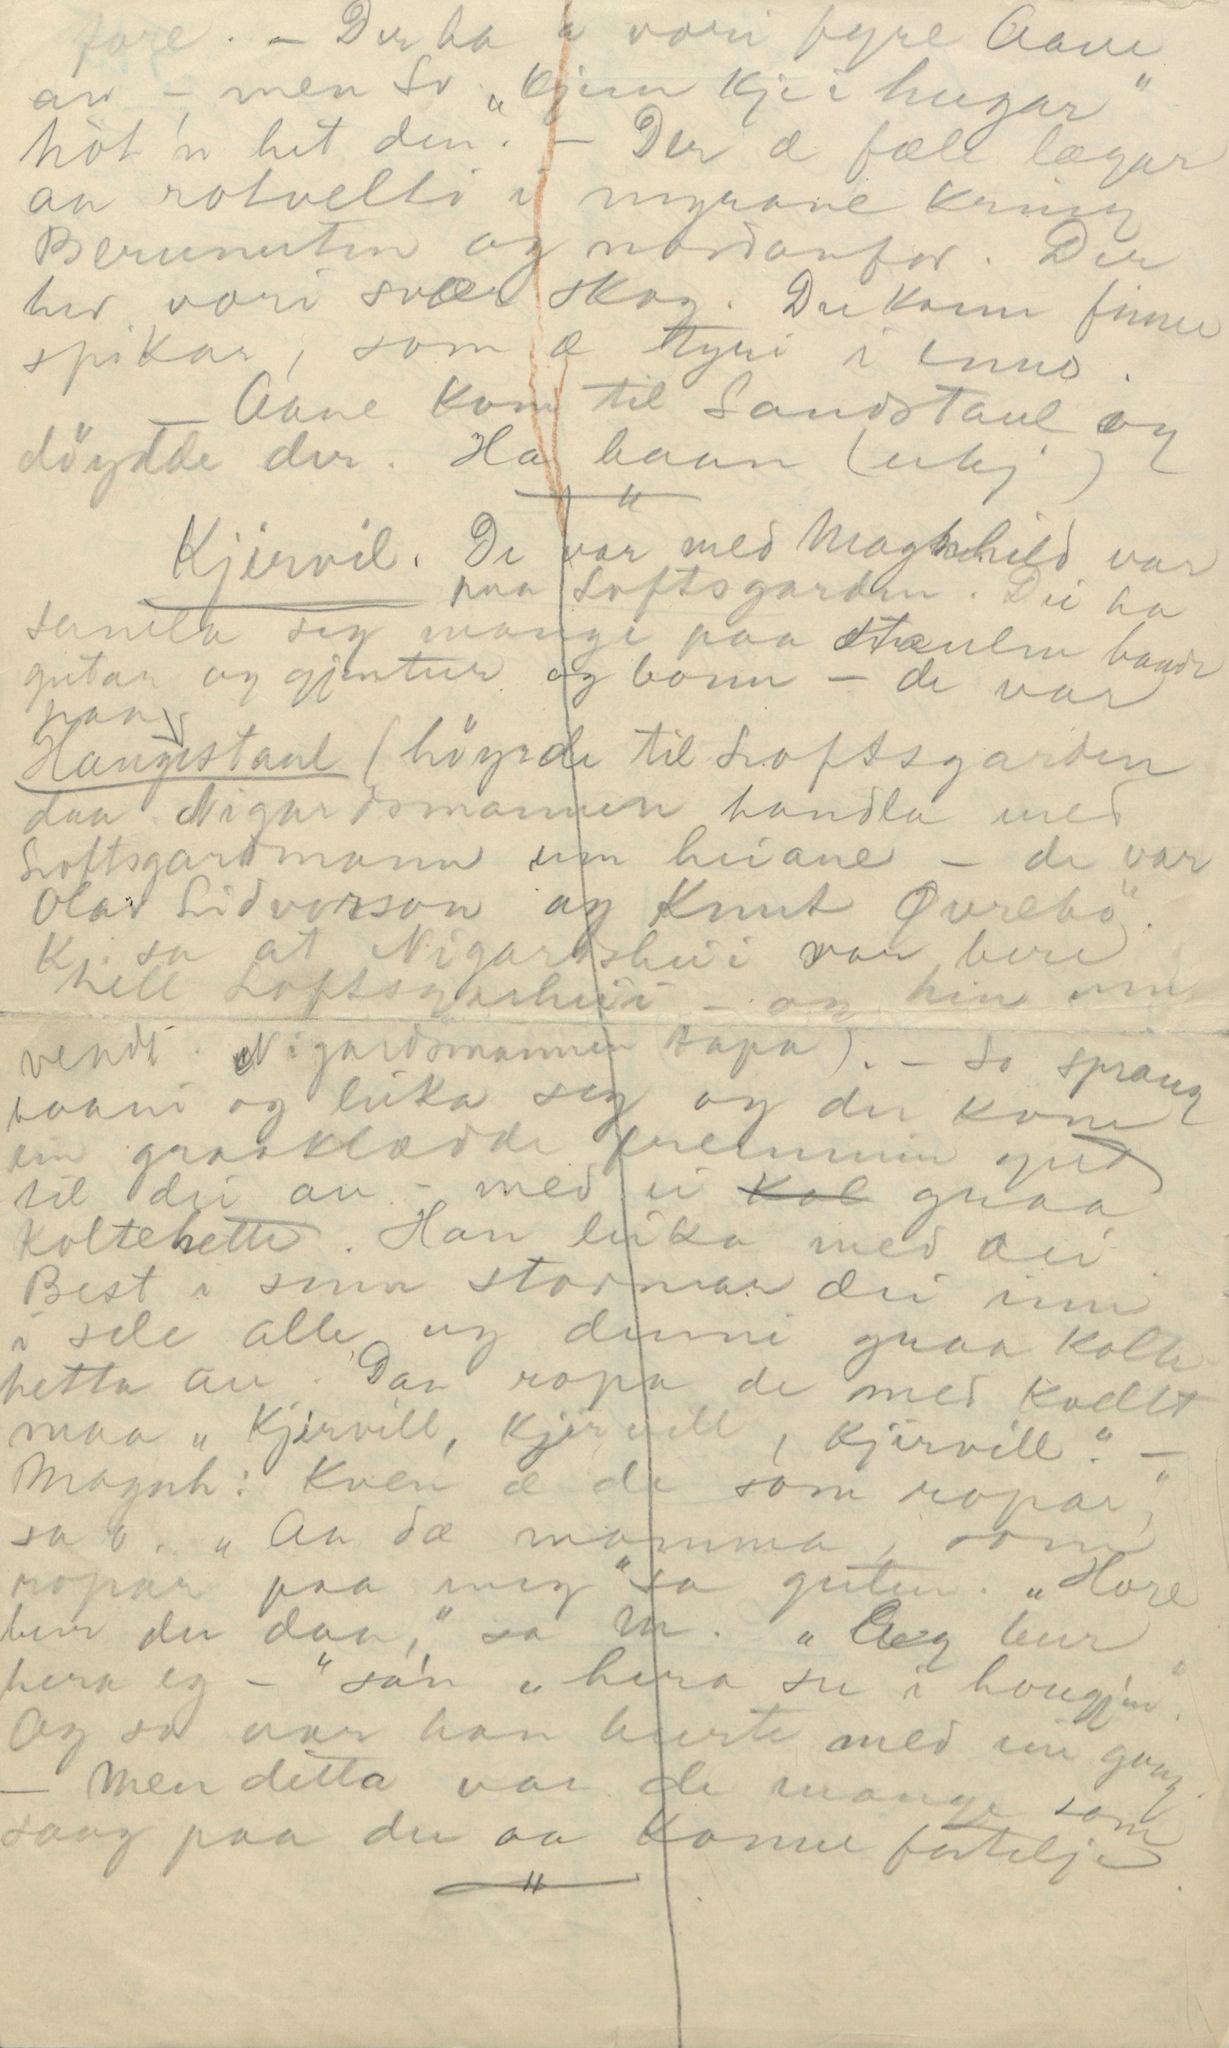 fore. – Der ha a vori fyre Aane
au – men So „kjem kje i hugar"
höt'n het den". – Der æ fæle lægar
au rotvelti i myrane kring
Berunuten og nordanfor. Der
her vori svær skog. Du kann finne
spikar, som æ tyri i enno.
– Aane kom til Sandstaul og
döydde der. Ha baan (ukj)
– " –
Kjervil. De var med Magnhild var
paa Loftsgarden. Dei ha
samla seg mange paa staulen baade
gutar og gjentur og bonn – de var
paa
Haugestaul (höyrde til Loftsgarden
daa Nigardsmannen handla med
Loftsgardmann um heiane – de var
Olav Sidvorson og Knut Øvrebö.
K. sa at Nigardsheii var bere
hell Loftsgarheii – og hin um
vendt. Nigardsmannen tapa). – So sprang
baani og leika seg og der kom
ein graaklædde fremmin gut
til dei au – med ei <s>Kol</s> graa
koltehette. Han leika med dei.
Best i senn stormar dei inn
i sele alle og denni graa kolte
hetta au. Daa ropa de med kvellt
maa „Kjervill, Kjervill, Kjervill". –
Magnh: Kven æ de som ropar",
sa o. „Aa dæ mamma, som
ropar paa meg" sa guten. „Hore
bur du daa," sa M. „Aeg bur
hera eg –" sa'n „hera su i hougjen".
Og so var han burte med ein gang.
– Men ditta var de mange som
saag paa du aa konne fortelje.
– " –